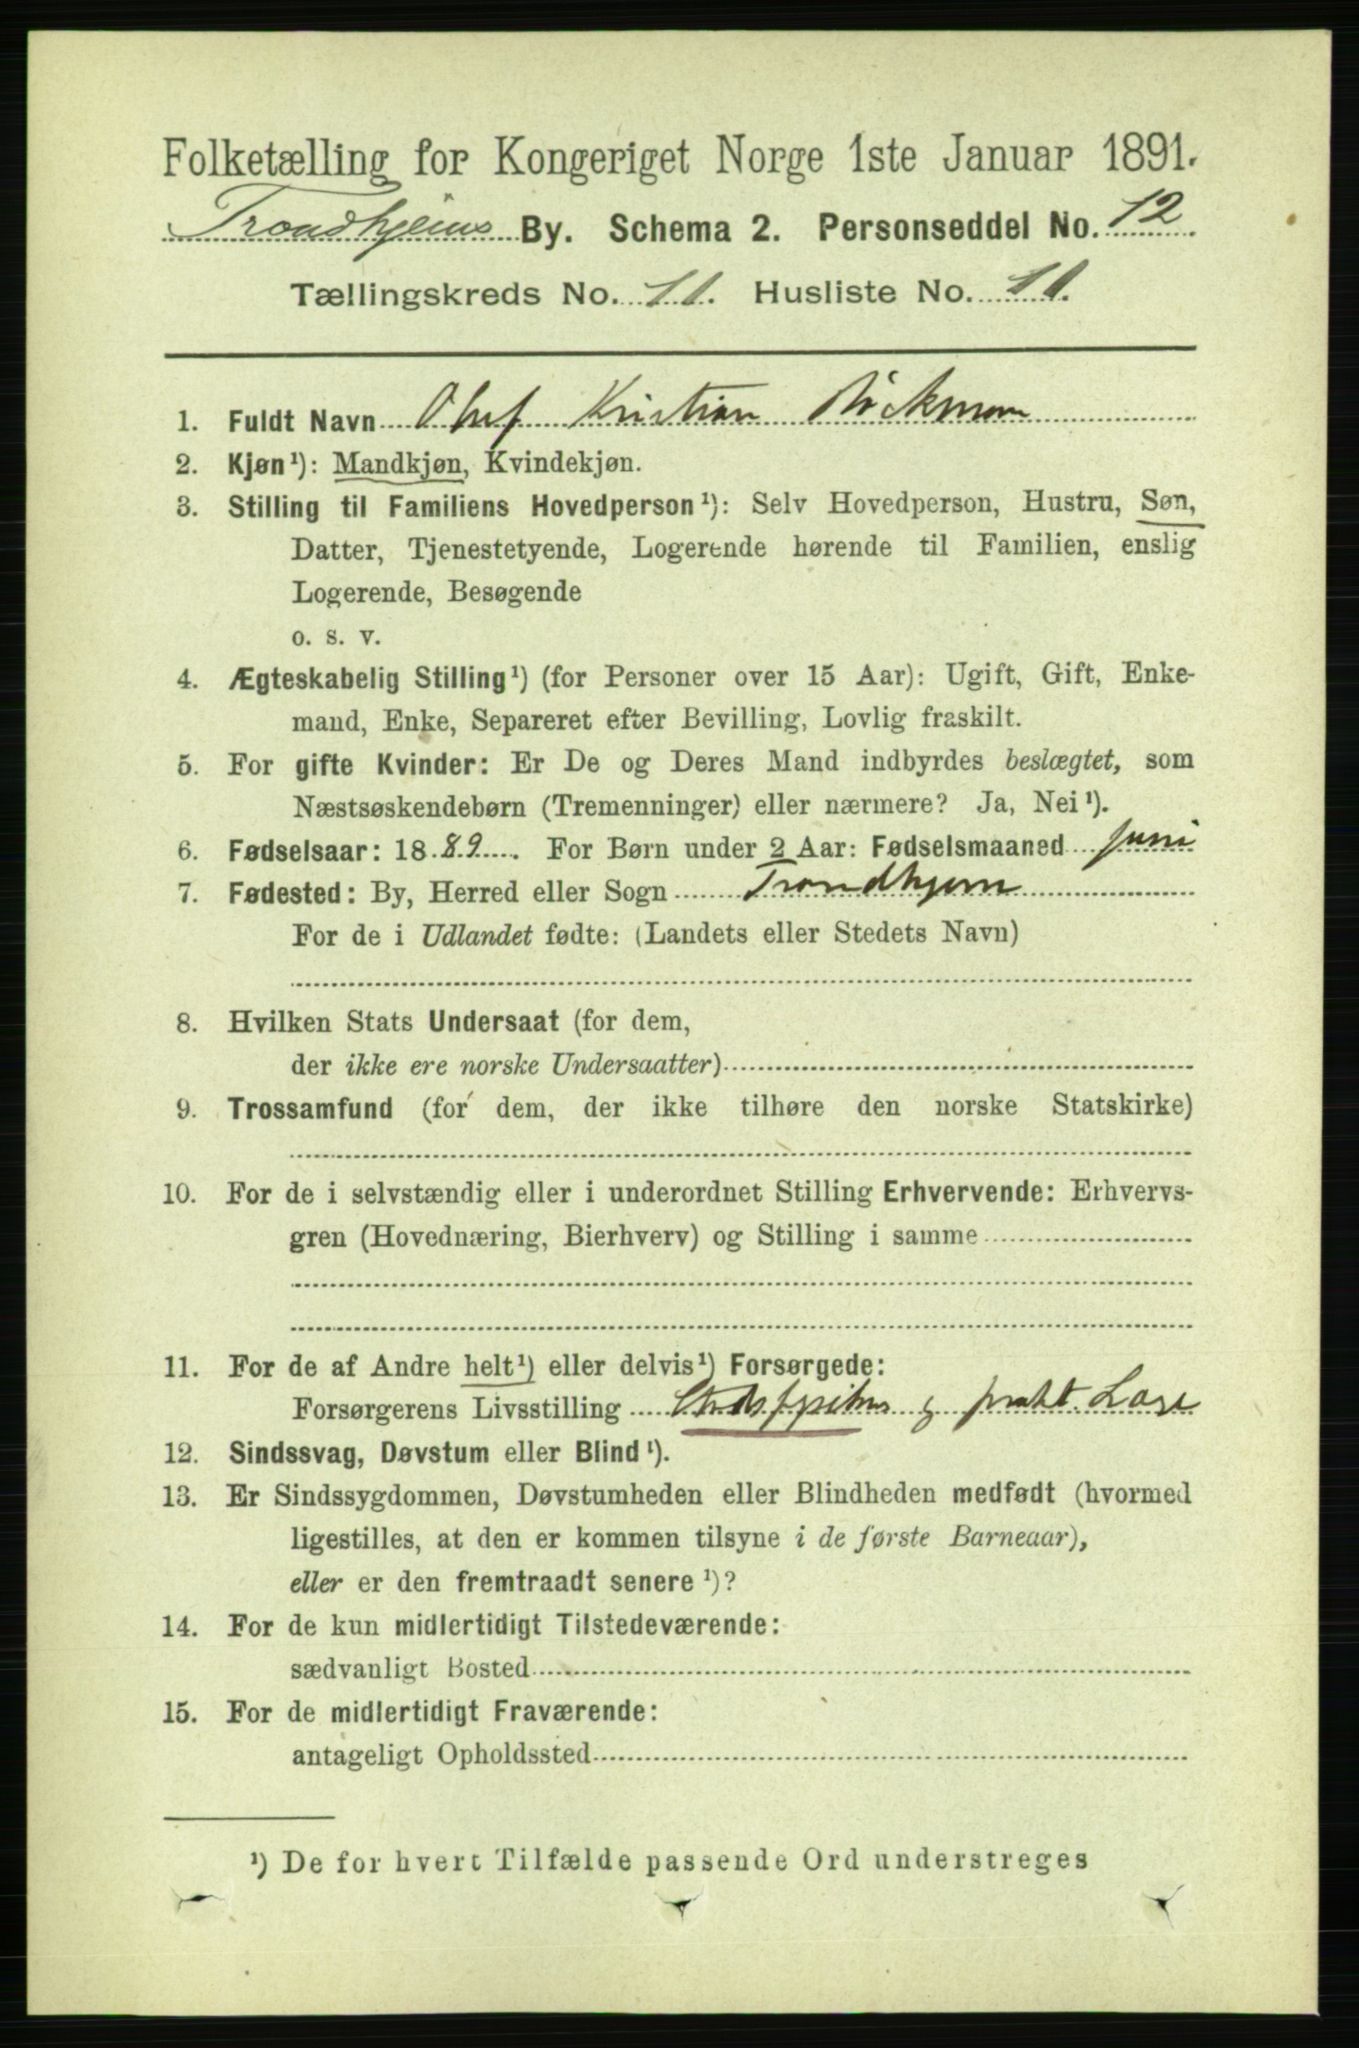 Folketælling for Kongeriget Norge 1ste Januar 1891.
Trondhjems By. Schema 2. Personseddel No. 12
Tællingskreds No. 11. Husliste No. 11.
1. Fuldt Navn Oluf Kristian Böckman
2. Kjøn¹): Mandkjøn, Kvindekjøn.
3. Stilling til Familiens Hovedperson¹): Selv Hovedperson, Hustru, Søn,
Datter, Tjenestetyende, Logerende hørende til Familien, enslig
Logerende, Besøgende
o. s. v.
4. Ægteskabelig Stilling¹) (for Personer over 15 Aar): Ugift, Gift, Enke-
mand, Enke, Separeret efter Bevilling, Lovlig fraskilt.
5. For gifte Kvinder: Er De og Deres Mand indbyrdes beslægtet, som
Næstsøskendebørn (Tremenninger) eller nærmere? Ja, Nei¹).
6. Fødselsaar: 1889. For Børn under 2 Aar: Fødselsmaaned Juni
7. Fødested: By, Herred eller Sogn Trondhjem
For de i Udlandet fødte: (Landets eller Stedets Navn)
8. Hvilken Stats Undersaat (for dem,
der ikke ere norske Undersaatter)
9. Trossamfund (for dem, der ikke tilhøre den norske Statskirke)
10. For de i selvstændig eller i underordnet Stilling Erhvervende: Erhvervs-
gren (Hovednæring, Bierhverv) og Stilling i samme
11. For de af Andre helt¹) eller delvis¹) Forsørgede:
Forsørgerens Livsstilling Stadsfysikus g prakt. Læge
12. Sindssvag, Døvstum eller Blind¹).
13. Er Sindssygdommen, Døvstumheden eller Blindheden medfødt (hvormed
ligestilles, at den er kommen tilsyne i de første Barneaar),
eller er den fremtraadt senere¹)?
14. For de kun midlertidigt Tilstedeværende:
sædvanligt Bosted
15. For de midlertidigt Fraværende:
antageligt Opholdssted
¹) De for hvert Tilfælde passende Ord understreges